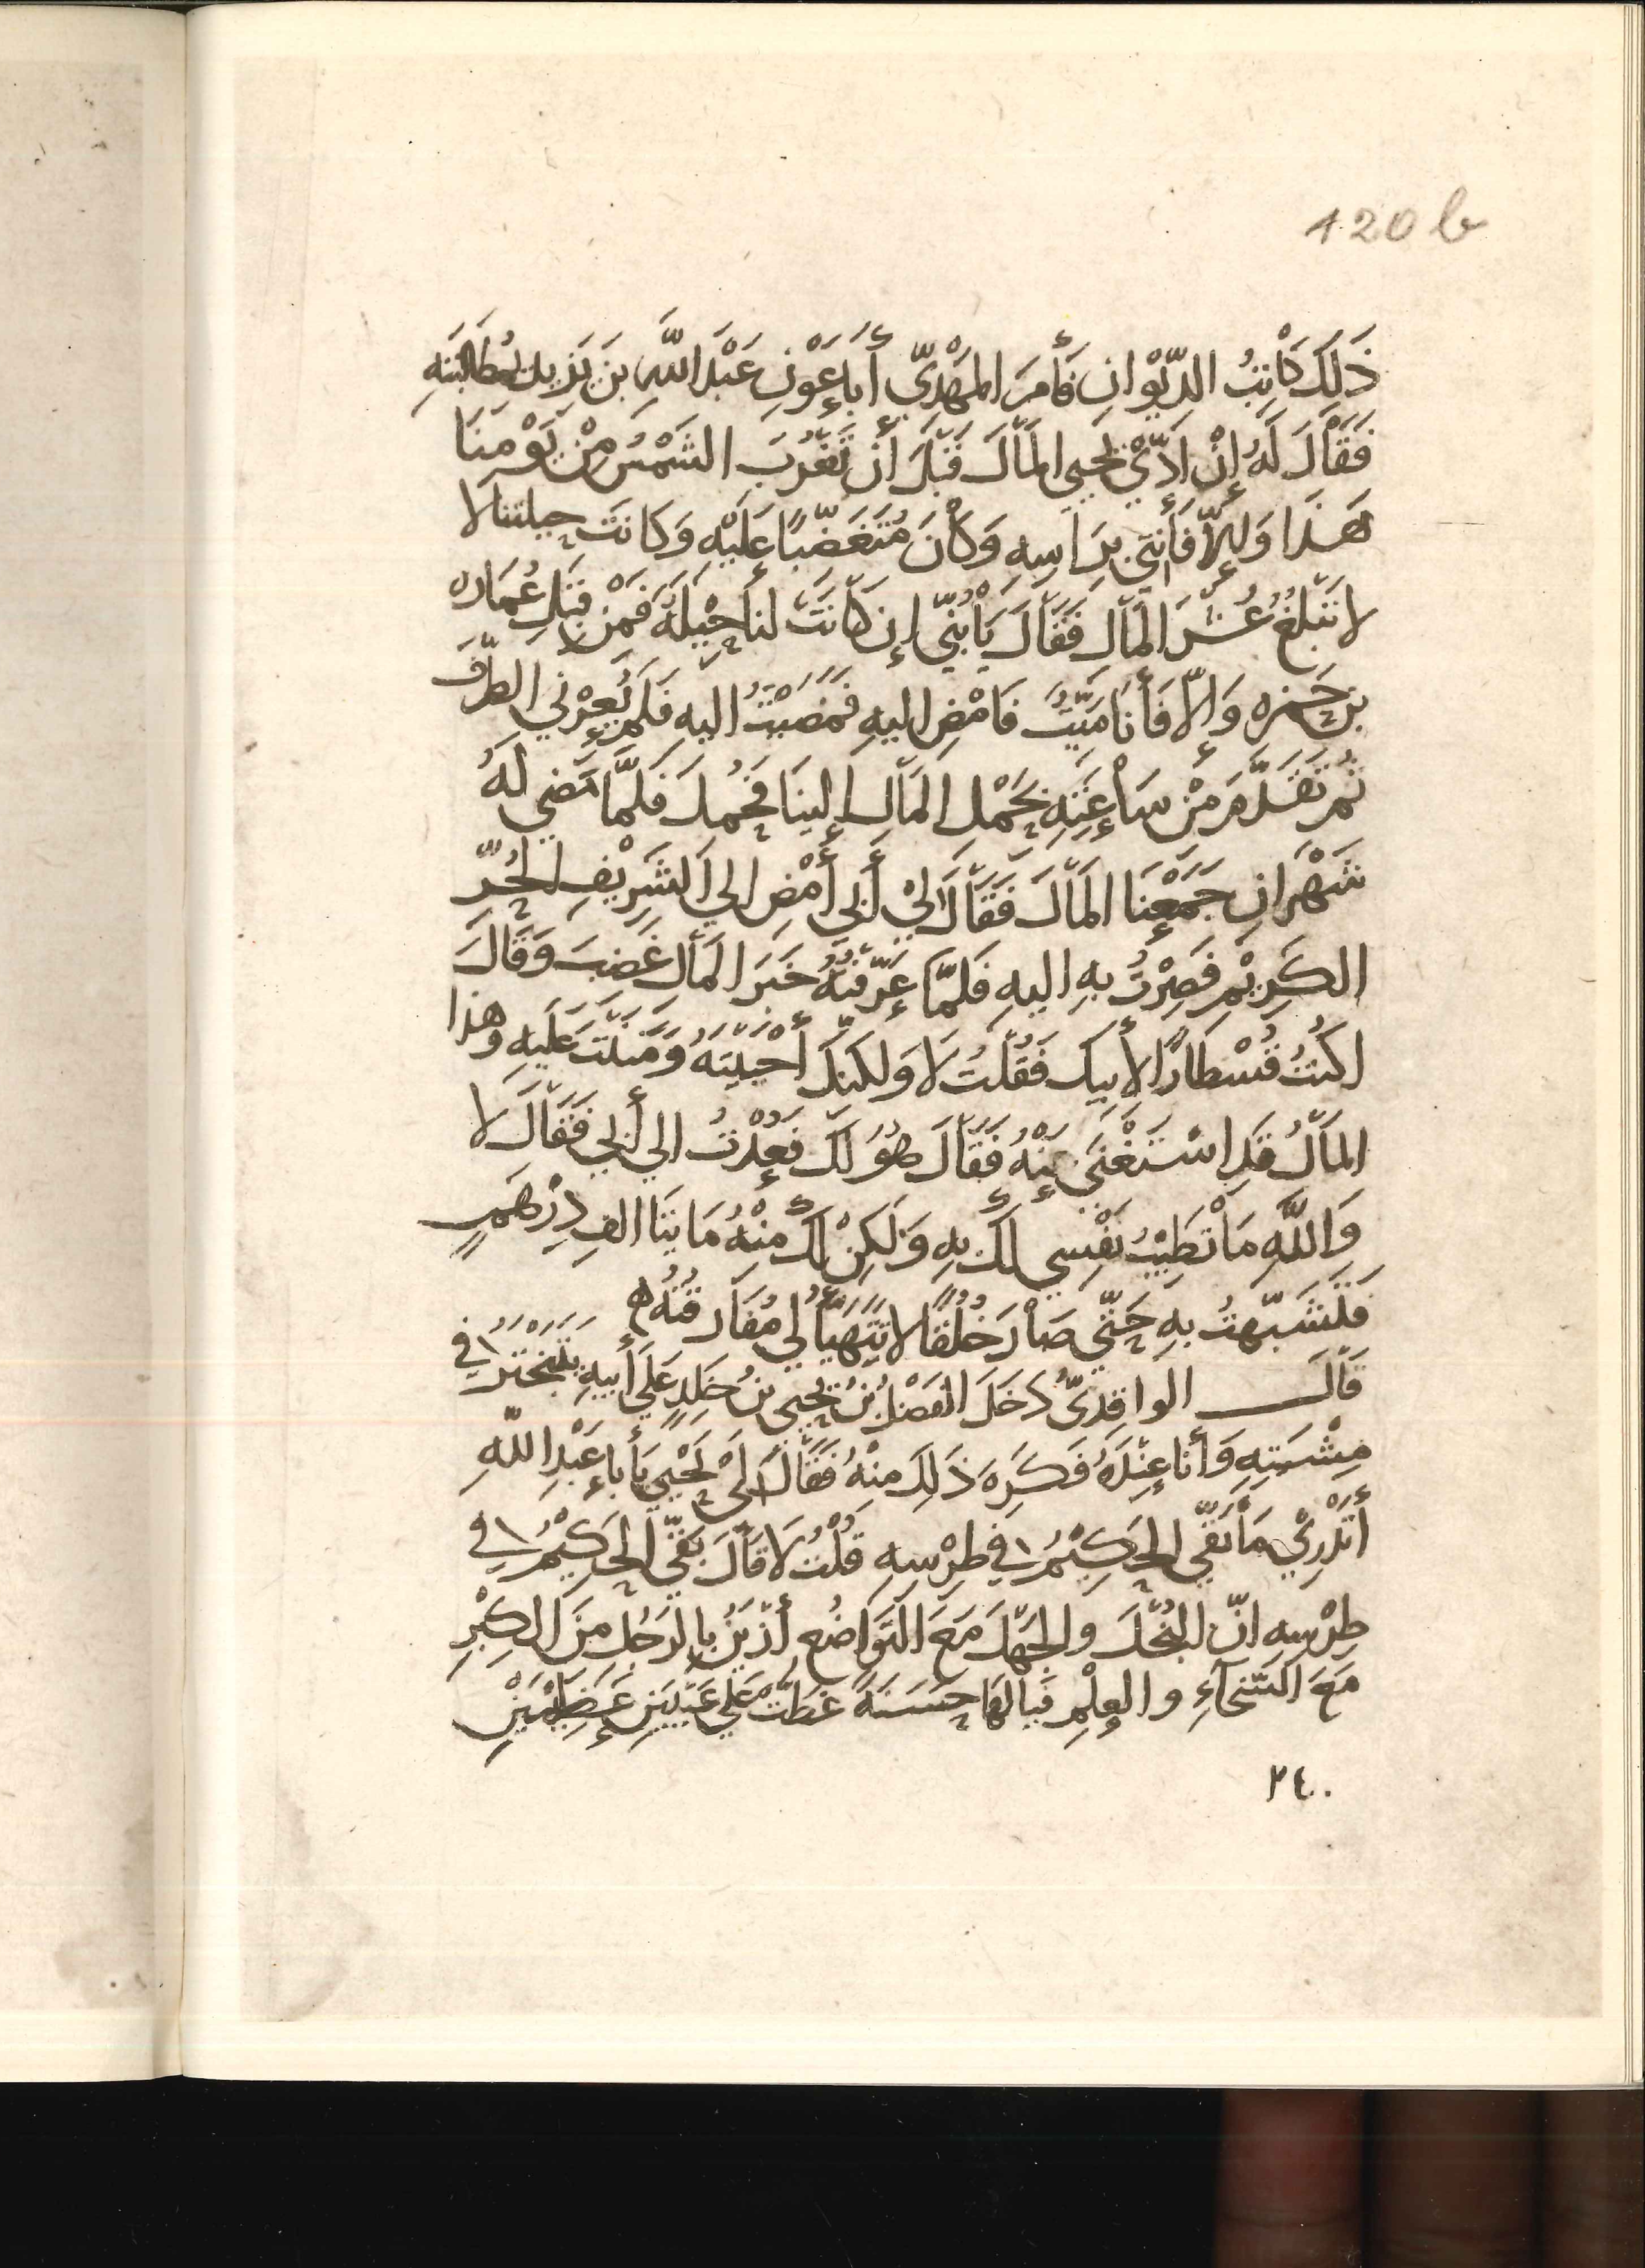 120 b
ذَلِكَ كَاْتِبُ الدِّيْوَانِ فَأَمرَ المَهْدِيّ أَبَا عَوْنِ عَبْدَ اللّهِ بنَ يَزيدَ بمُطَالَبَتِهِ
فَقَاْلَ لَهُ إِنْ اَدّيْ يَحيى المَاْلَ قَبْلَ أَنْ تَغْرُبَ الشَمْسُ مِنْ يَوْمِنَا
هَذَا وَإِلاّ فَأْتِنِيْ بِرَاسِهِ وَكَاْنَ مُتَغَضِّبًا عَلَيْهِ وَكَانَتْ حِيلتنا لا
لا تَبْلُغُ عُشْرَ المَاْلِ فَقَاْلَ يَاْبُنَيّ إِن كَاْنَتْ لنا حِيْلَةٌ فَمَنْ قِبَلِ عُمَارة
بن حَمزه وَإِلاّ فَأَنَا مَيّتٌ فَامْضِ اليهِ فَمَضَيْتُ اليهِ فَلَم يُعِرْنِي الطَّرْفَ
ثُمّ تَقَدَّمَ مِنْ سَاْعَتِهِ بِحَمْلِ المَاْلِ إِلينَا فَحُمِلَ فَلمَّا مَضى لَهُ
شَهْرَانِ جَمَعْنَا المَاْلَ فَقَاْلَ لِيْ أَبي أمْضِ الي الشَرِيْفِ الحُرِّ
الكَرِيْمِ فَصِرْتُ بهِ اليهِ فَلَمّا عَرّفْتُهُ خَبَرَ المَاْلِ غَضِبَ وَقَاْلَ
اكُنْتُ قُسْطَارًا لأَبِيكَ فَقُلْتُ لَا وَلكنّكَ أَحْيَيْتَهُ وَمَنَنْتَ عَلَيهِ وَهذا
المَاْلُ قَدِ اسْتَغْنَي عَنْهُ فَقَاْلَ هُوَ لَكَ فَعُدْتُ الي أَبي فَقَاْلَ لا
وَاللّهِ مَاْ تَطِيْبُ نَفْسِي لَكَ بهِ وَلَكِنْ لكَ مِنْهُ مَايتَا الفِ دِرْهَمٍ
فَتَشَبّهتُ بهِ حَتّي صَاْرَ خُلُقًا لا يَتَهَيّأُ لي مُفَارَقَتُهُ ه
قَاْلَ الواقِدِيّ دَخَلَ الفَضْلُ بْنُ يَحيى بنُ خلدٍ عَلَي أَبيهِ يَتَبَخْتَرُ في
مِشْيَتِهِ وَأَنَا عِنْدَهُ فَكَرِهَ ذَلِكَ مِنْهُ فَقَاْلَ لِيْ يَحْيي يَا أَبا عَبْدِ اللّهِ
أَتَدْرِيْ مَاْ بَقّي الحَكِيْمُ في طِرْسِهِ قُلْتُ لَا قَاْلَ بَقّي الحَكِيْمُ في
طِرْسِهِ انّ البُخْلَ والجَهْلَ مَعَ التَوَاضُعِ أَزْيَنُ بالرَجُل مِنَ الكِبْرِ
مَعَ السّخَآءِ والعِلْمِ فَيالهَا حَسَنَةً غَطّت عَلي عَيْبَينِ عَظِيْمَيْنِ
٢٤٠